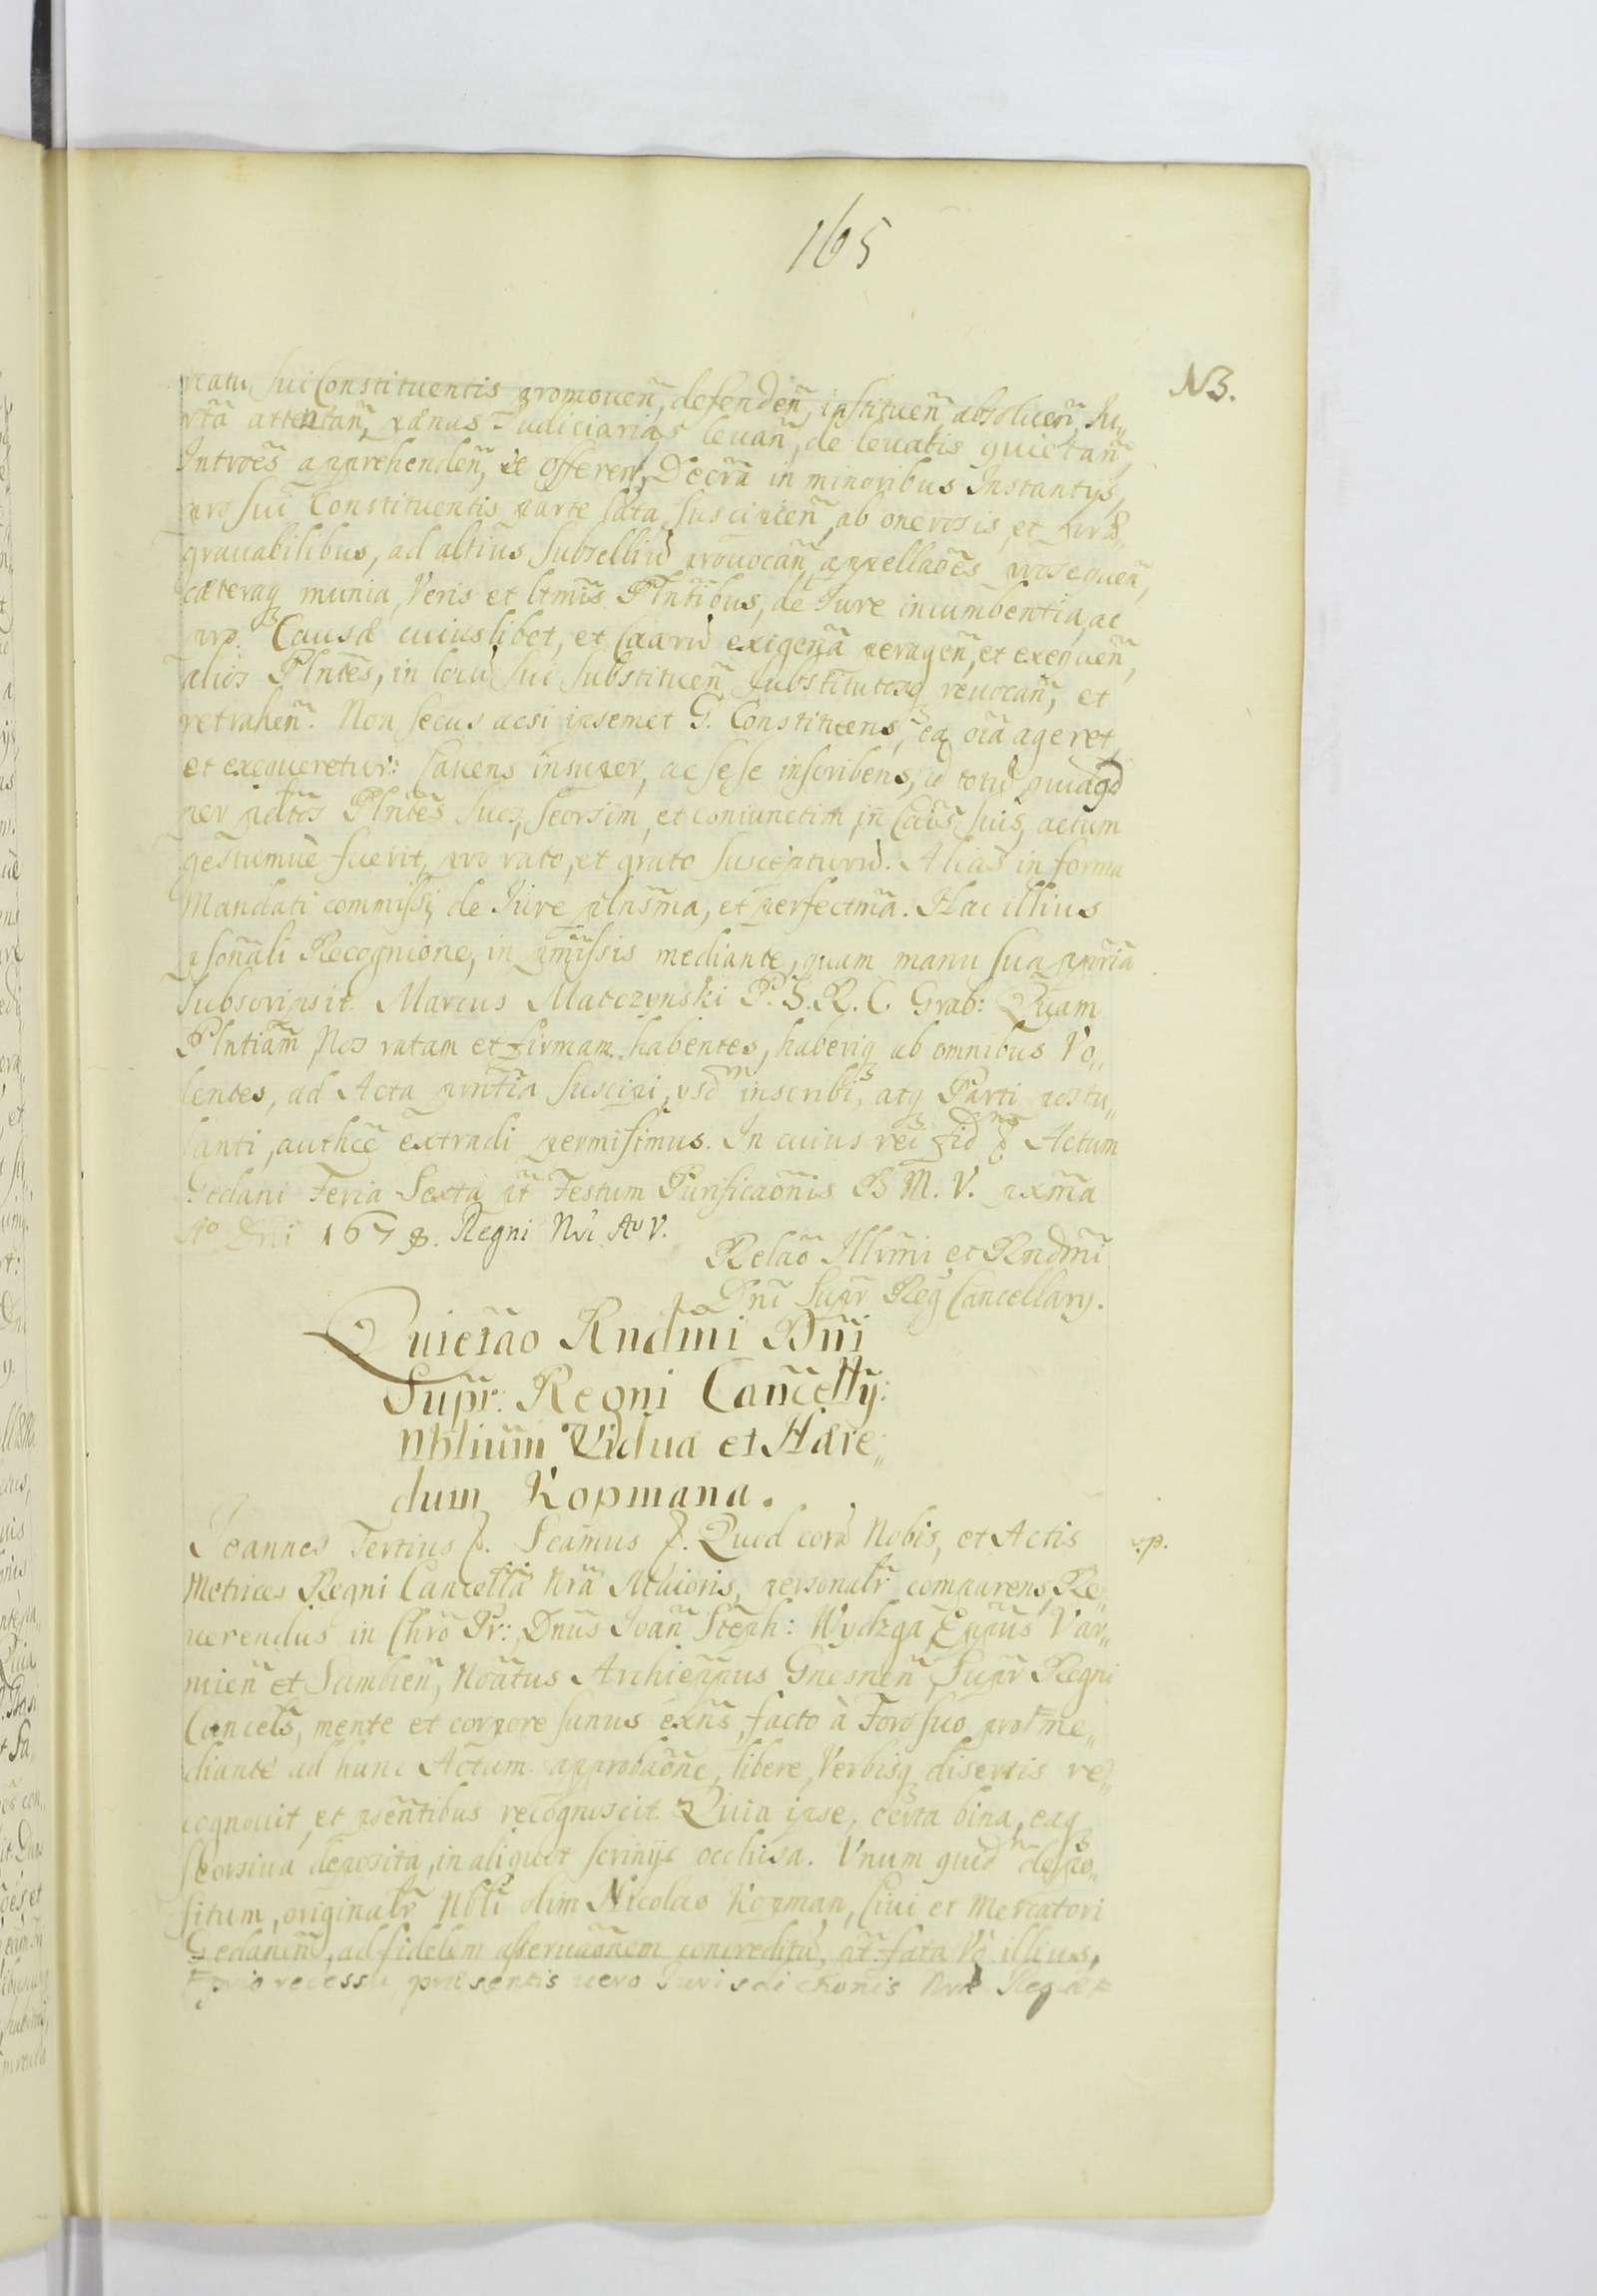 165
NB.
reatu sui Constituentis promoueñ, defendeñ, instituen͂, absolueñ, Iu„
rta͂ attentañ, pænas Iudiciarias leuañ, de leuatis quietañ,
Introes͂ apprehendeñ, et offereñ, Decra͂ in minoribus Instantys,
pro sui Constituentis parte lata suscipieñ, ab onerosis, et
grauabilibus, ad altius subselliu͂ prouocañ appellaões prosequeñ,
cæteraq munia, Veris et ltmis͂ Plntibus, de Iure incumbentia, ac
pro Causæ cuiuslibet, et Caaru͂ exigen͂a perageñ, et exequeñ,
alios Plntes͂, in locu͂ sui substitueñ substitutosq reuocañ, et
retraheñ. Non secus acsi ipsemet G. Constituens, ea oia͂ ageret
et exequeretur: Cauens insuper, ac sese inscribens, id totu͂ quidqd
per Plntes͂ suos, seorsim, et coniunctim in Caus͂ suis actum
gestumue fuerit, pro rato, et grato suscepturu͂. Alias in forma
Mandati commissi, de Iure plns͂ma, et perfectm͂a. Hac illius
psonali Recognione, in pm͂issis mediante, quam manu sua ppria͂
subscripsit. Marcus Matczynski P. S. R. C. Grab: Quam
Plntiam͂ Nos ratam et firmam habentes, haberiq ab omnibus Vo„
lentes, ad Acta pnt͂ia suscipi, inscribi, atq Parti postu„
lanti, authce͂ extradi permisimus. In cuius rei fid Actum
Gedani Feria Sexta pt͂ Festum Purificaonis͂ B M. V. pxm͂a
Ao Dni͂ 1678. Regni Nri Ao V.
Relao͂ Illrmi͂ et Rndmi͂
Dni͂ Supr Reg Cancellary.
Quietao͂ Rndmi͂ Dni͂
Supr͂: Regni Canc͂elly:
Nblium͂ Vidua et Hære„
dum Kopmana.
Ioannes Tertius &. Seam͂us &. Quod cora͂ Nobis, et Actis
v.p.
Metrices Regni Cancella͂ Nra͂ Maioris, personalr͂ comparens Re„
uerendus in Chro͂ Pr: Dnus͂ Ioañ Steph: Wydzga Epp͂us Var„
mieñ et Sambieñ, Noat͂us Archiepp͂us Gnesneñ Supr Regni
Cancels͂, mente et corpore sanus exñs, facto à Foro suo me„
diante ad hunc Actum approbaone͂, libere, Verbisq disertis re„
cognouit, et psentibus recognoscit. Quia ipse, certa bina, eaq
seorsiua deposita, in aliquot scrinijs occlusa. Vnum quid depo„
situm, originalr͂ Nbli͂ olim Nicolao Kopman, Ciui et Mercatori
Gedaneñ, ad fidelem asseruaonem͂ concreditu͂, pt͂ fata Vo illius,
recessu præsentis uero Iurisdictionis Nræ Reg